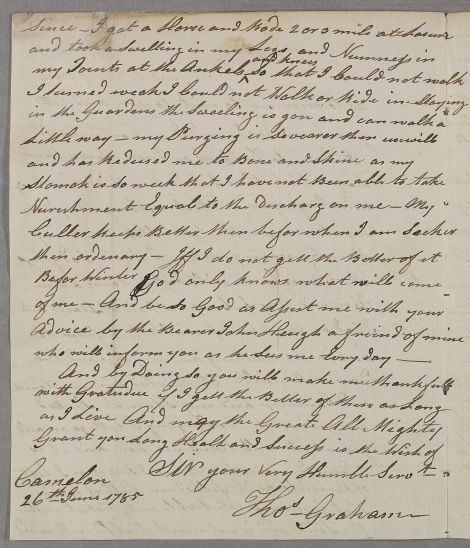 Since – I got a Horse and Rode 2 or 3 mils at Leasure
and took a Swelling in my Legs and Numness in
my Joints at the Ankels and knees So that I Could not walk
I turned weak I Could not Walk or Ride in Staying
in the Guardens the Sweling is gon and can walk a
Little way – my Purging is severer then usewill
and has Redused me to Bone and Skine as my
Stomak is so week that I have not Been able to take
Nurishment Equal to the Discharg on me – My
Culler keeps Better then befor when I am Secker
then ordenary – Iff I do not gett the Better of it
Befor Winter God only knows what will come
of me – And be so Good as Asist me with your
Advice by the Bearer John Heugh a friend of mine
who will inform you as he Sees me Evry day –
And by Doing so you will make me thankfull
with Gratudee if I gett the Better of these as Long
as I Live And may the Greate All Mighty
Grant you Long Health and Success is the Wish of
Sir your Very Humble Servt
Camelon
26th June 1785
Thos Graham